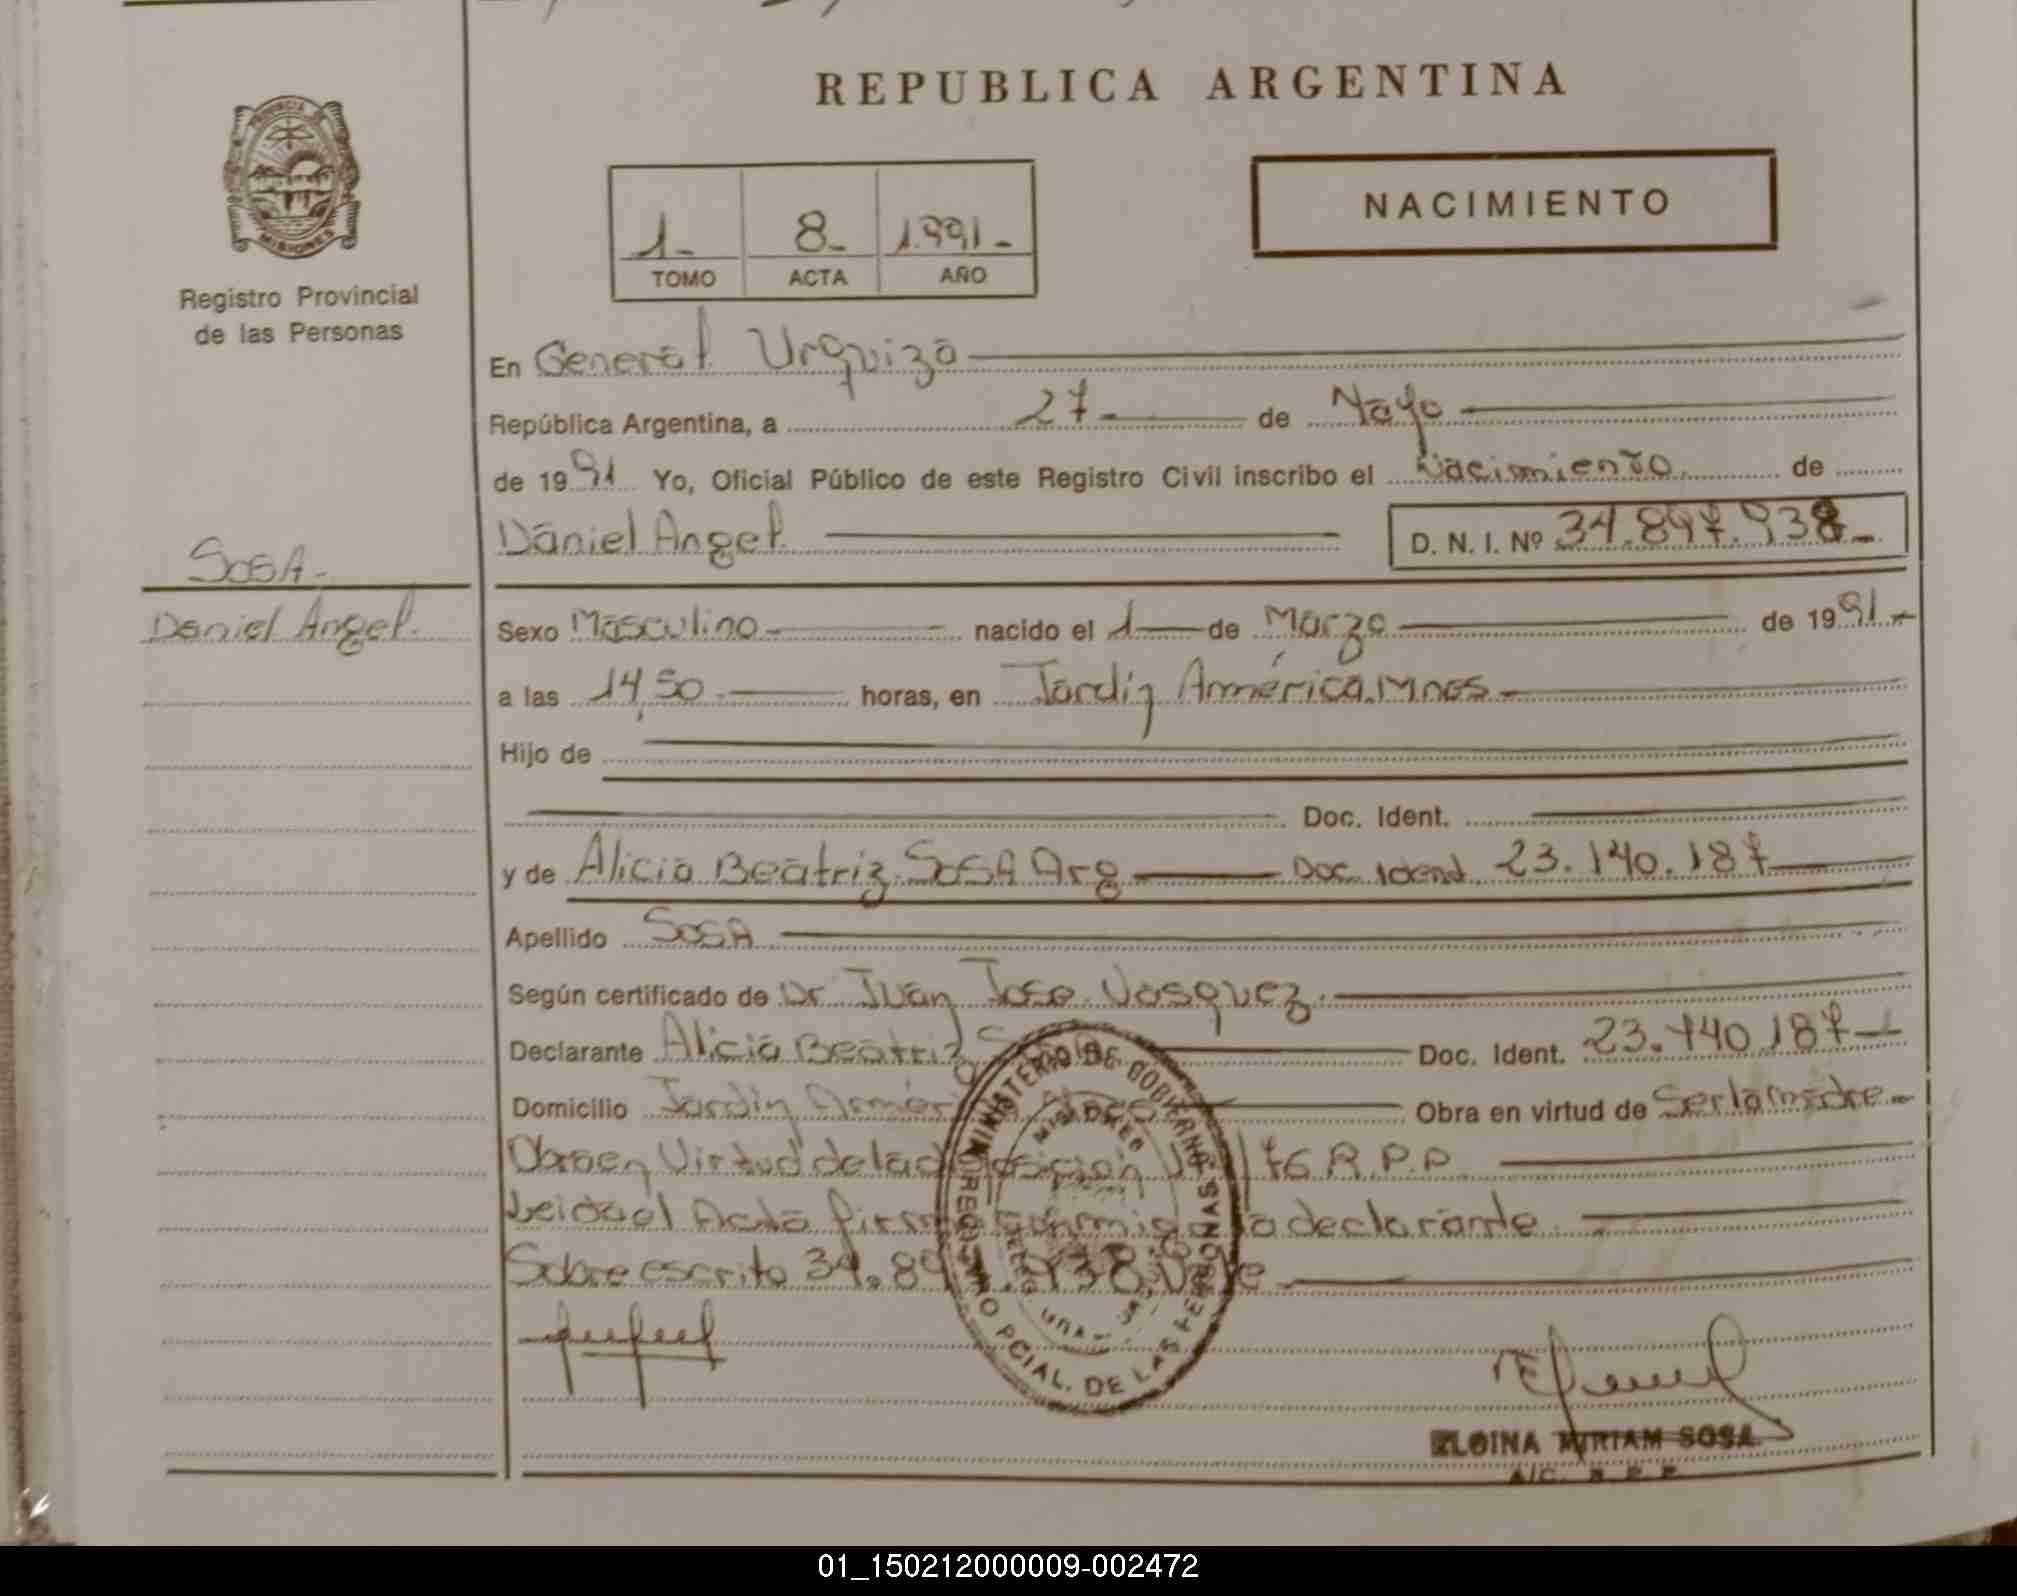 REPUBLICA ARGENTINA
PROVINCIA DE
MISIONES
Registro Provincial
de las Personas
1- 8- 1.991-
TOMO ACTA AÑO
NACIMIENTO
En General Urquiza
República Argentina, a 27 de Mayo
de 1991 Yo, Oficial Público de este Registro Civil inscribo el Nacimiento de
Daniel Angel D. N. I. Nº 34.897.938-
SOSA-
Daniel Angel.
Sexo Masculino- nacido el 1 de Marzo de 1991-
a las 14,50 horas, en Jardin América.Mnes-
Hijo de
Doc. Ident.
y de Alicia Beatriz SOSA Arg Doc. Ident 23.140.187
Apellido SOSA
Según certificado de Dr Juan Jose Vasquez.
Declarante Alicia Beatriz Doc. Ident. 23.140.187-
Domicilio Jardin Obra en virtud de Ser la madre-
Obra en Virtud de la 76 R.P.P
Leida el Acta la declarante
Sobre escrito 34.897.938: Vale
MINISTERIO DE GOBIERNO
MISIONES
REGISTRO PCIAL. DE LAS PERSONAS
ELOINA MIRIAM SOSA
A/C. R. P. P.
01_150212000009-002472